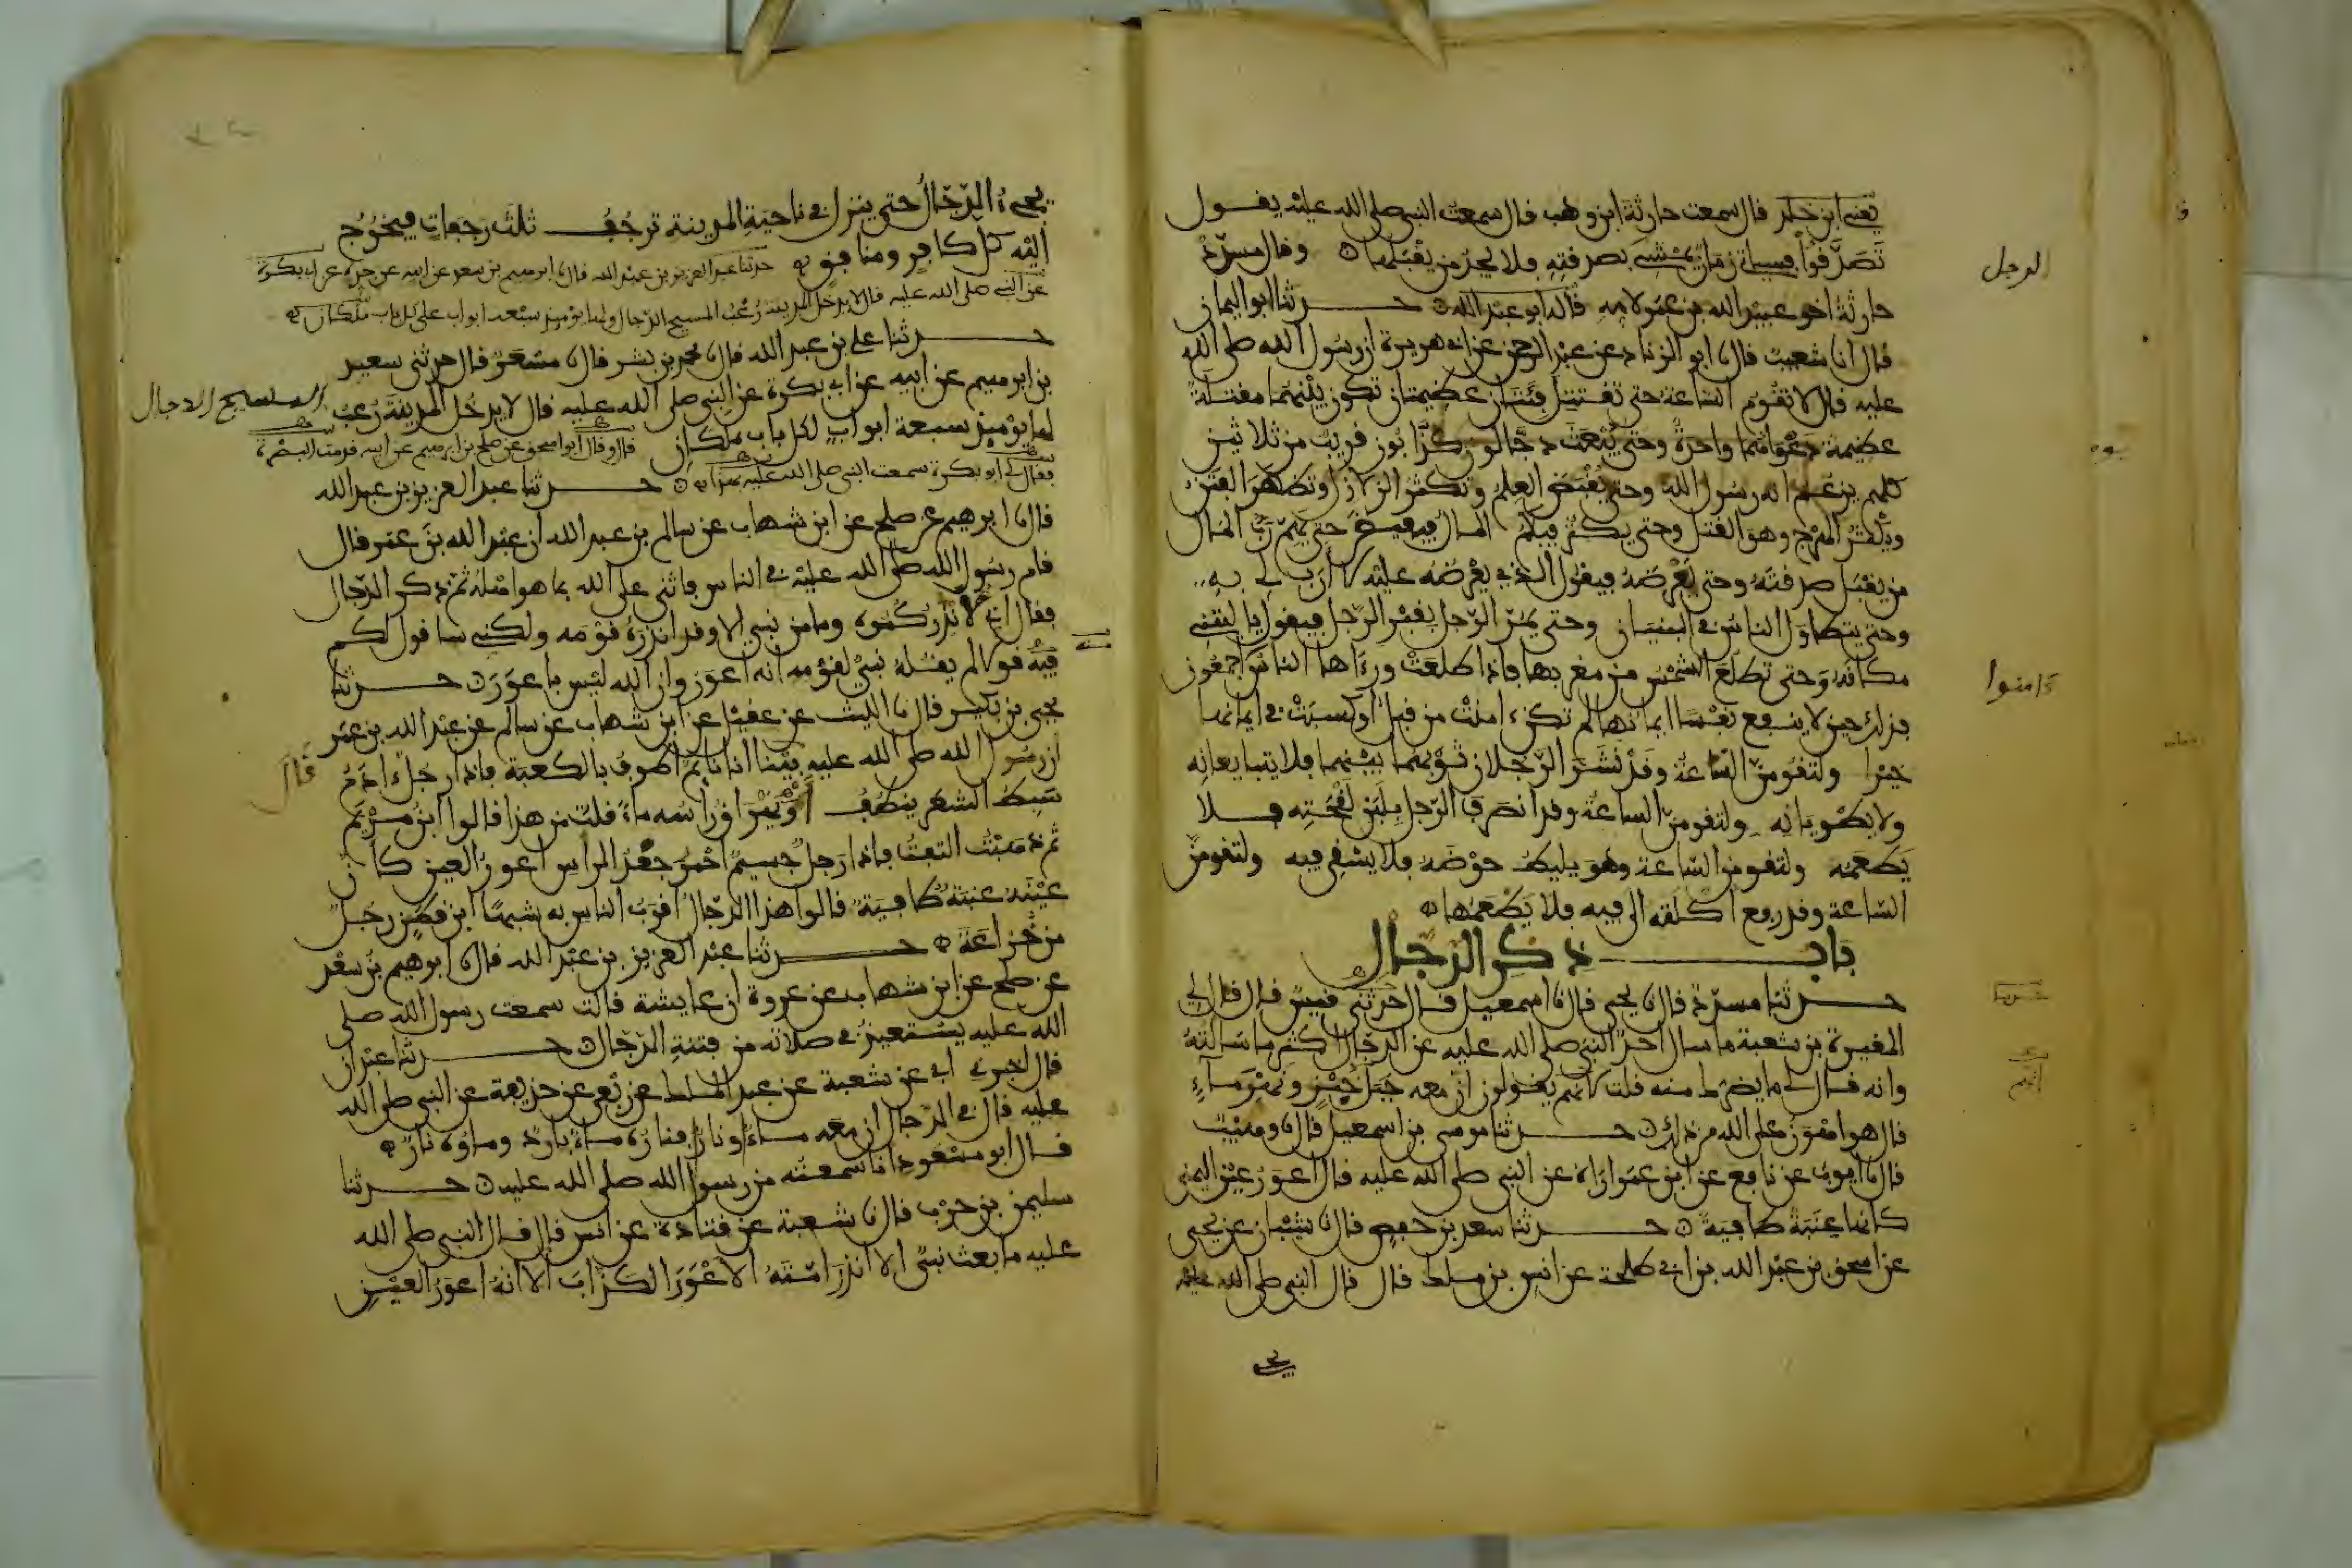 يعني ابن خلد قال سمعت حارثة ابن وهب قال سمعت النبي صلى الله عليه يقول
تَصَدَّقُوا فسياتي زمان يمشي بصدقته فلا يجد من يقبلها وقال مسدّد
الرجل
حارثة اخو عبيد الله بن عمر لامه قاله ابو عبد الله حـــدثنا ابو اليمان
قال انا شعيب قال نا ابو الزناد عن عبد الرحمن عن ابي هريرة ان رسول الله صلى الله
عليه قال لا تقوم الساعة حتى تقتتل فئتان عظيمتان تكون بينهما مقتلة
عظيمة دعواهما واحدة وحتى يُبعَث دجّالون كذّابون قريب من ثلاثين
كلهم يزعم انه رسول الله وحتى يُقبَض العلم وتكثر الزلازل وتظهر الفتن
ويكثر الهرج وهو القتل وحتى يكثر فيكم المال فيفيض حتى يهمّ ربّ المال
من يقبل صدقته وحتى يَعْرضَهُ فيقول الذي يعرضه عليه لا ارب لي به
وحتى يتطاول الناس في البنيان وحتى يمرّ الرّجل بقبر الرّجل فيقول يا ليتني
مكانه وحتى تطلع الشمس من مغربها فاذا طلعت ورءاها الناس اجمعون
ءامنوا
فذلك حين لا ينفع نفسا ايمانها لم تكن ءامنت من قبل او كسبت في ايمانها
خيرا ولتقومنّ السّاعة وقد نشَر الرّجلان ثوبهما بينهما فلا يتبايعانه
ولا يطويانه ولتقومنّ الساعة وقد انصرف الرّجل بلبن لقحته فلا
يَطْعَمه ولتقومن السّاعة وهو يليط حوضه فلا يسقي فيه ولتقومنّ
السّاعة وقد رفع اكلته الى فيه فلا يَطْعَمُها
بابـــــ ذكر الدجال
حـــدثنا مسدّد قال نا يحيى قال نا اسمعيل قال حدثني قيس قال قال لي
المغيرة بن شعبة ما سال احد النبي صلى الله عليه عن الدجال اكثر ما سالته
وانه قال لي ما يضرك منه قلت لانهم يقولون انّ معه جبل خبز ونهر ماء
قال هو اهون على الله من ذلك حـــدثنا موسى بن اسمعيل قال نا وهيب
قال نا ايوب عن نافع عن ابن عمر اراه عن النبي صلى الله عليه قال اعور عين اليمنى
كانها عِنَبَة طافية حـــدثنا سعد بن حفص قال نا شيبان عن يحيى
عن اسحق بن عبد الله بن ابي طلحة عن انس بن ملك قال قال النبي صلى الله عليه
يجيءُ الدّجّال حتى ينزل في ناحية المدينة ترجُفـــ ثلث رجفات فيخرُج
اليه كل كافر ومنافق حدثنا عبد العزيز بن عبد الله قال نا ابرهيم بن سعد عن ابيه عن جده عن ابي بكرة
عن النبي صلى الله عليه قال لا يدخل المدينة رُعْبُ المسيح الدّجال ولها يومئذ سبعة ابواب على كل باب ملكان
حـــدثنا علي بن عبد الله قال نا محمد بن بشر قال نا مسْعَرٌ قال حدثني سعد
بن ابرهيم عن ابيه عن ابي بكرة عن النبي صلى الله عليه قال لا يدخل المدينة رُعْبُ
المسيح الدجال
لها يومئذ سبعة ابواب لكل باب ملكان قال وقال ابو اسحق عن صلح بن ابرهيم عن ابيه قدمت البصْرة
فقال لي ابو بكرة سمعت النبي صلى الله عليه بهذا حـــدثنا عبد العزيز بن عبد الله
قال نا ابرهيم عن صلح عن ابن شهاب عن سالم بن عبد الله ان عبد الله بن عمر قال
قام رسول الله صلى الله عليه في الناس فاثنى على الله بما هو اهله ثم ذكر الدّجال
فقال اني لانذركموه وما من نبي الا وقد انذرهُ قومه ولكني ساقول لكم
فيه قولا لم يقله نبي لقومه انه اعور وان الله ليس باعور حـــدثنا
يحيى بن بكير قال نا الليث عن عقيل عن ابن شهاب عن سالم عن عبد الله بن عمر
ان رسول الله صلى الله عليه بينا انا نائم اطوف بالكعبة فاذا رجل ءادم
قال
سَبِط الشعر ينطُف او يُهَرَاق راسه ماءً قلت من هذا قالوا ابن مريم
ثم ذهبت التفت فاذا رجل جسيم احمر جعد الراس اعور العين كانّ
عينه عنبة طافية قالوا هذا الدّجال اقرب الناس به شبها ابن قطن رجل
من خزاعة حـــدثنا عبد العزيز بن عبد الله قال نا ابرهيم بن سعد
عن صلح عن ابن شهاب عن عروة ان عايشة قالت سمعت رسول الله صلى
الله عليه يستعيذ في صلاته من فتنة الدّجال حـــدثنا عبدان
قال اخبرني ابي عن شعبة عن عبد الملك عن ربعي عن حذيفة عن النبي صلى الله
عليه قال في الدّجال ان معه ماءً ونارًا فناره ماءٌ بارد وماؤه نار
قال ابو مسعود انا سمعته من رسول الله صلى الله عليه حـــدثنا
سليمن بن حرب قال نا شعبة عن قتادة عن انس قال قال النبي صلى الله
عليه ما بعث نبيّ الا انذر امّتَهُ الاعْوَرَ الكذّابَ الا انهُ اعور العين